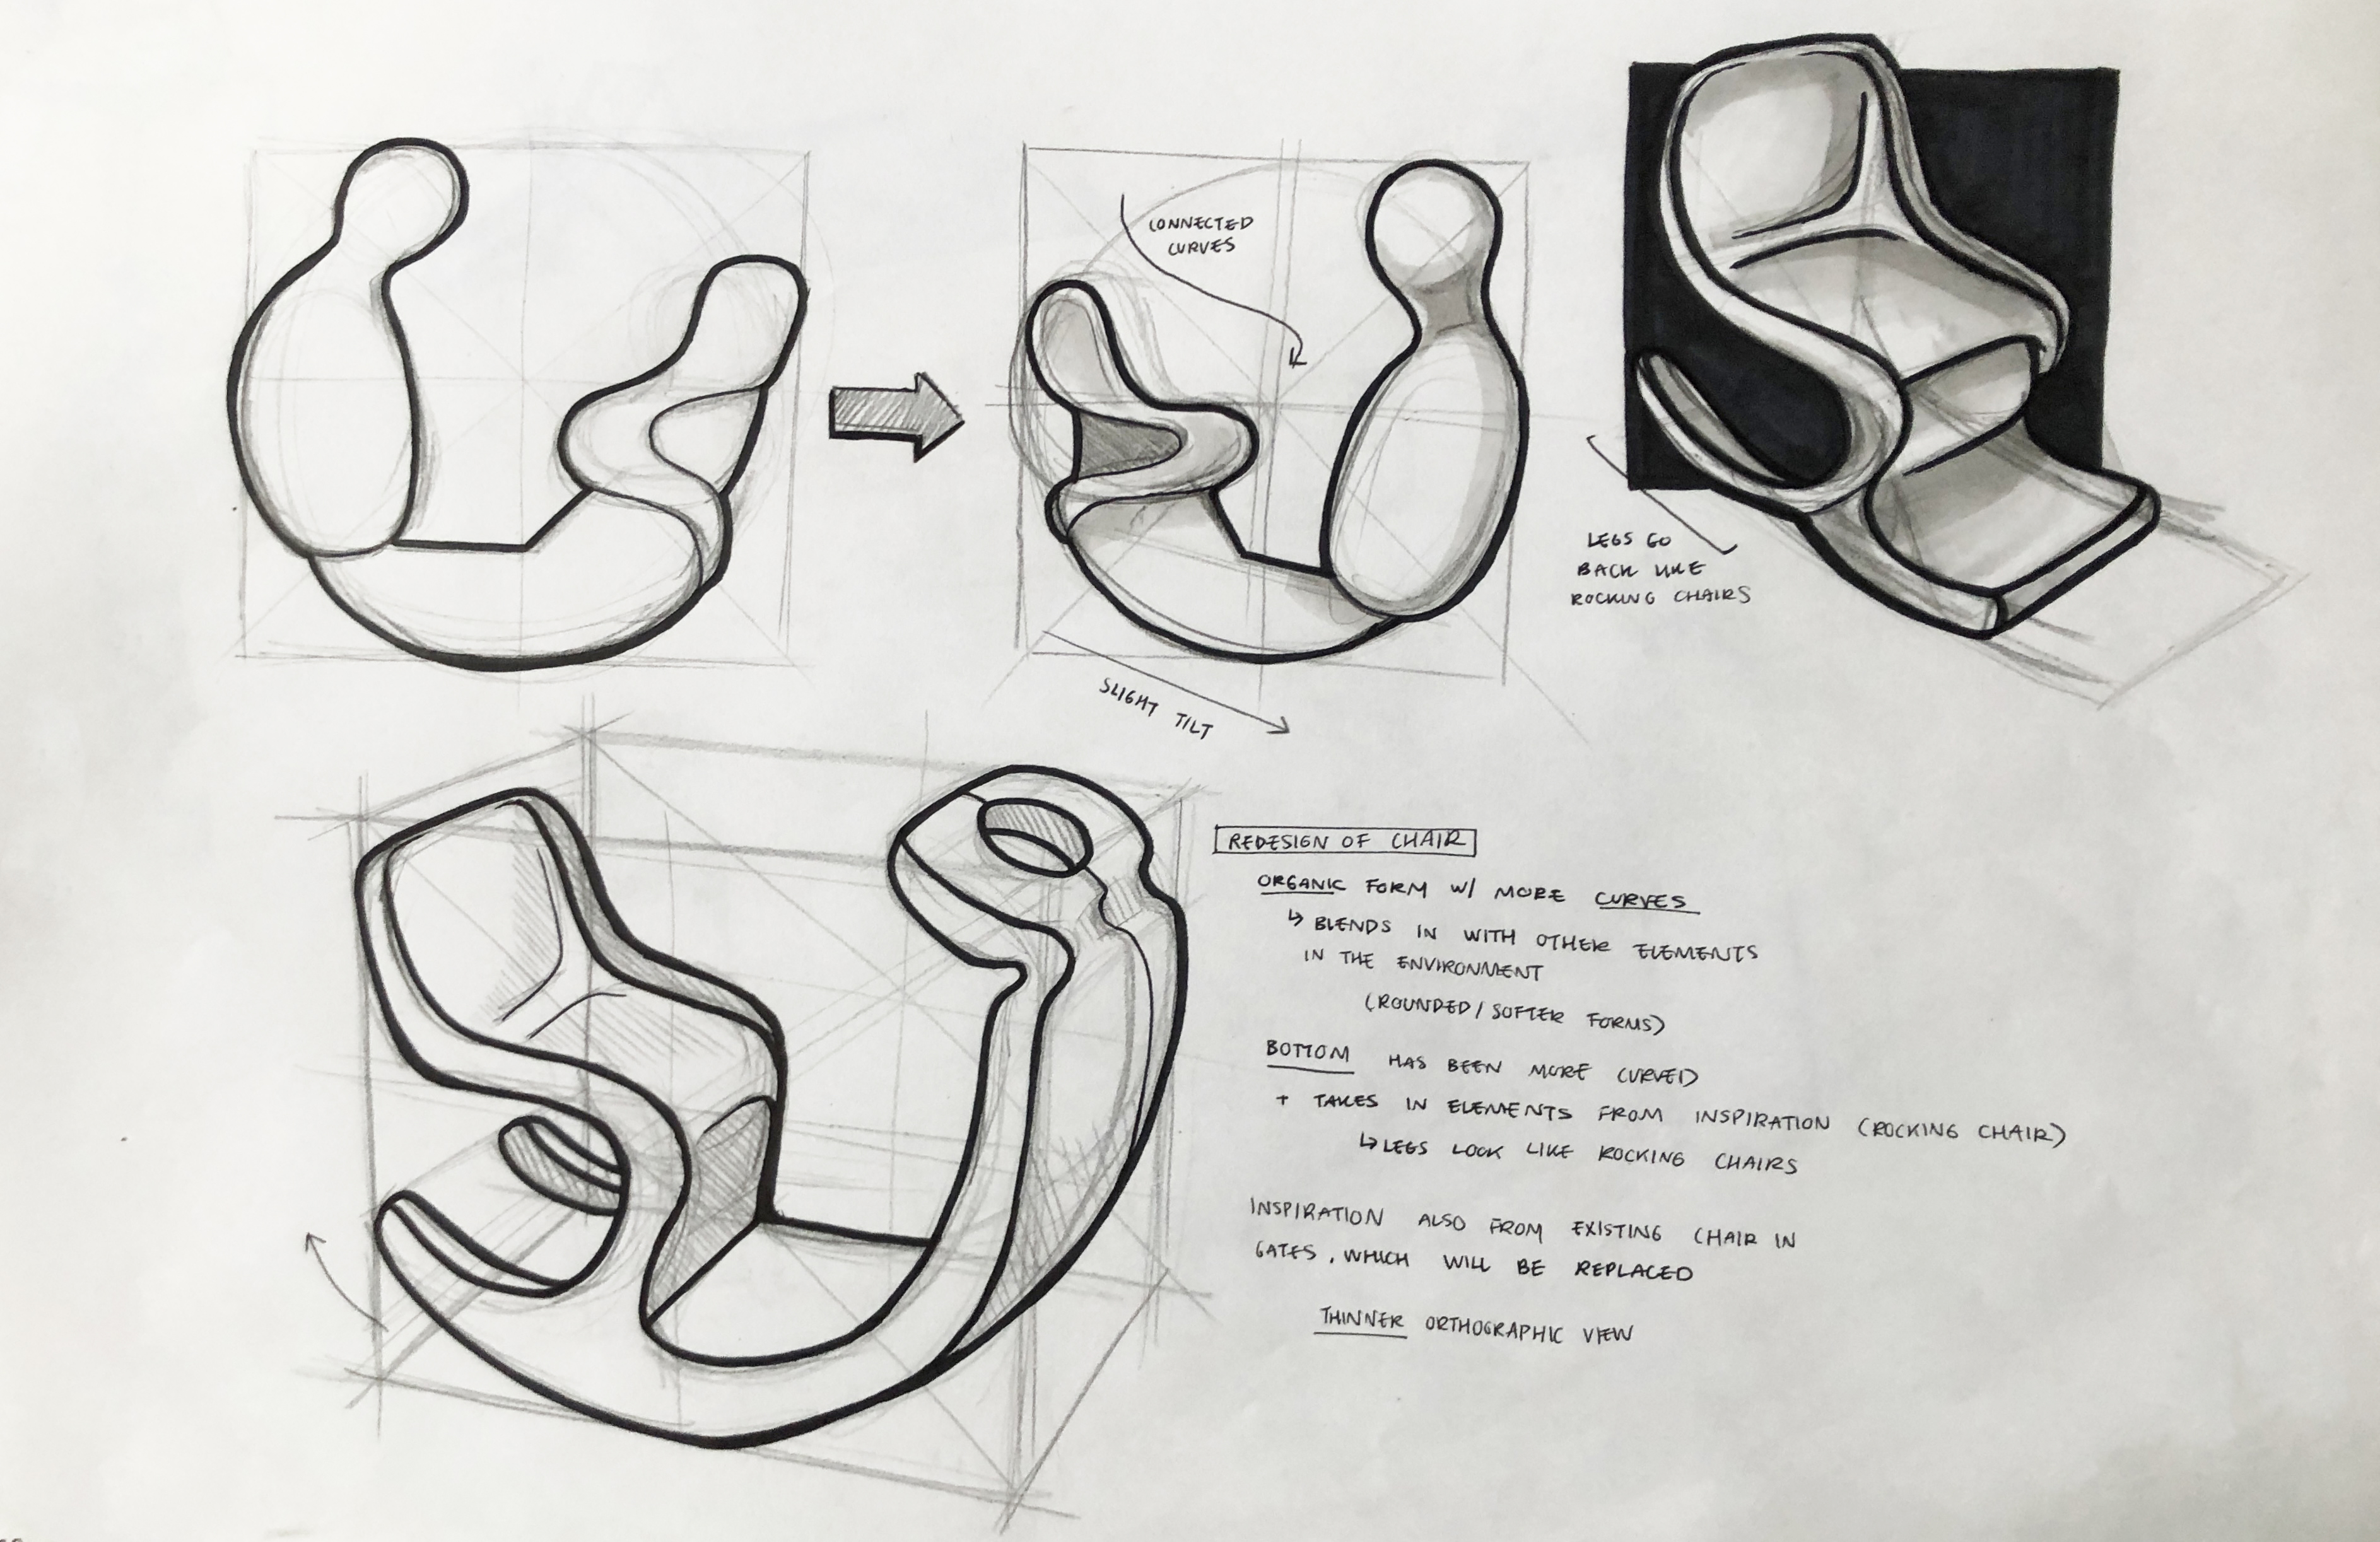 CONNECTED
CURVES
LEGS GO
BACK LIKE
ROCKING CHAIRS
SLIGHT TILT
REDESIGN OF CHAIR
ORGANIC FORM W/ MORE CURVES
↳ BLENDS IN WITH OTHER ELEMENTS
IN THE ENVIRONMENT
(ROUNDED/SOFTER FORMS)
BOTTOM HAS BEEN MORE CURVED
+ TAKES IN ELEMENTS FROM INSPIRATION (ROCKING CHAIR)
↳ LEGS LOOK LIKE ROCKING CHAIRS
INSPIRATION ALSO FROM EXISTING CHAIR IN
GATES, WHICH WILL BE REPLACED
THINNER ORTHOGRAPHIC VIEW